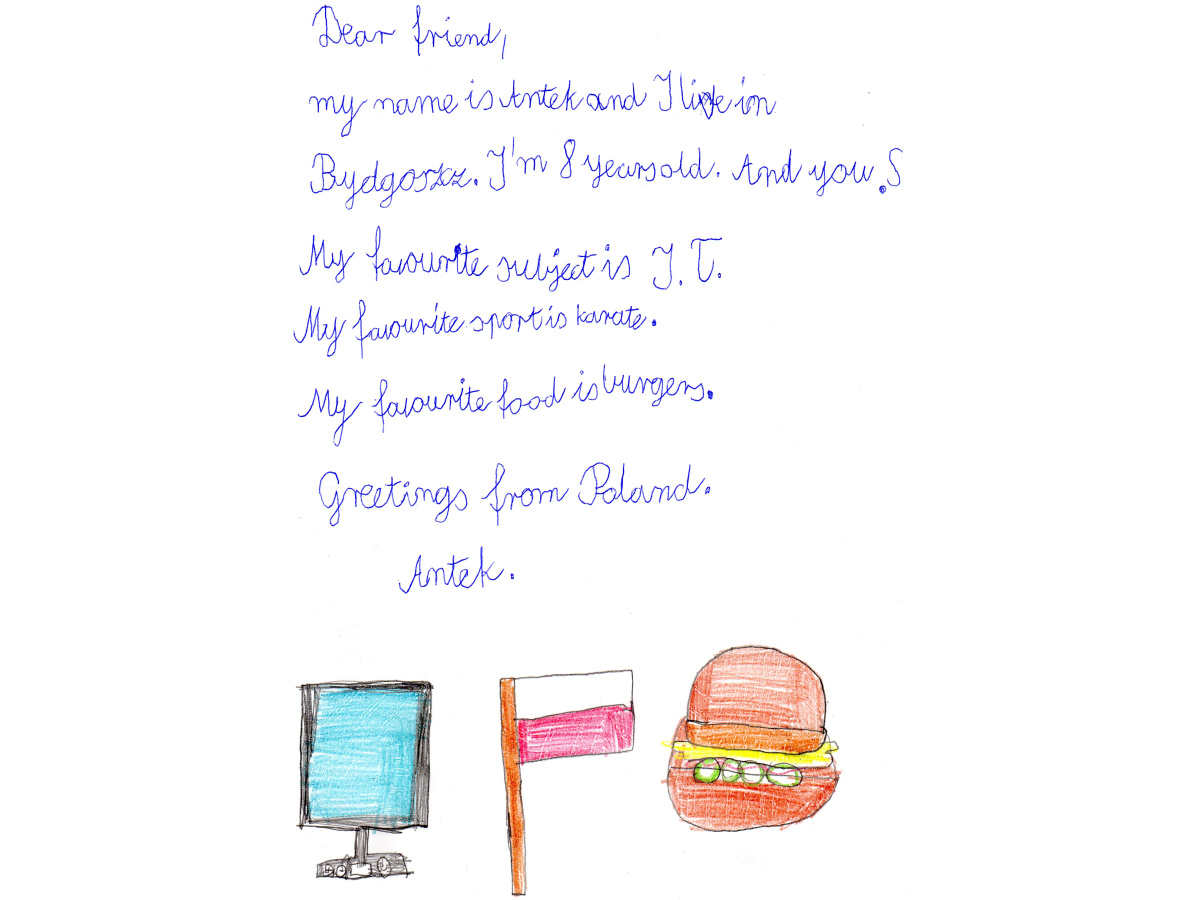 Dear friend,
my name is Antek and I live in
Bydgoszcz. I'm 8 years old. And you?
My favourite subject is I.T.
My favourite sport is karate.
My favourite food is burgers.
Greetings from Poland.
Antek.